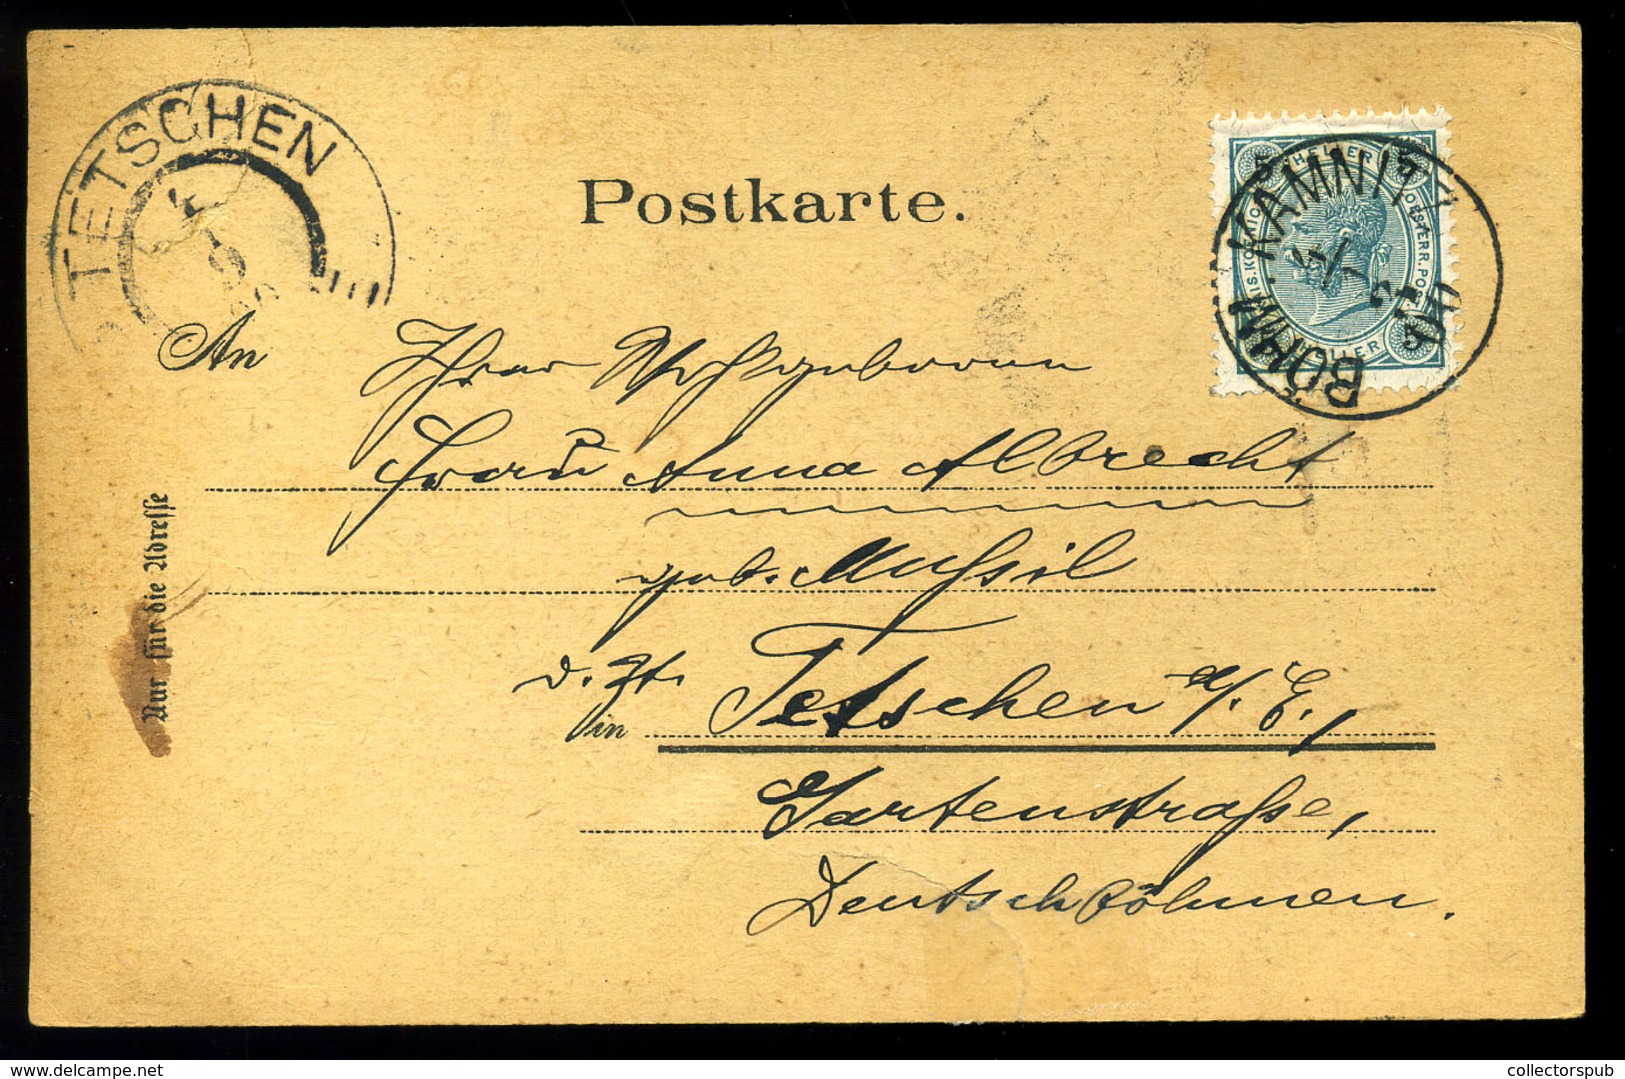 TETSCHEN
Postkarte.
5 HELLER 5
KAIS. KÖNIGL. OESTERR. POST
5 HELLER 5
KAMNITZ
BÖHM.
An
Frau Anna Albrecht
geb. Mussil
d. Zt.
in Tetschen a/E.,
Gartenstraße,
Deutschböhmen.
Nur für die Adresse
www.delcampe.net
collectorspub